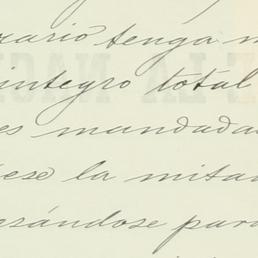 rario tenga n
integro total
es mandada
ese la mitad
esándose para